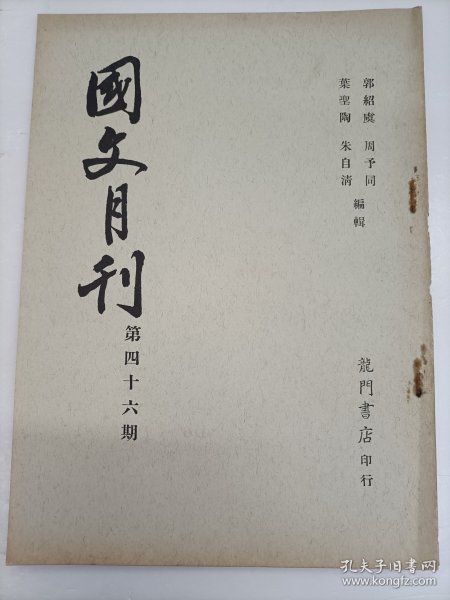 郭紹虞 周予同
葉聖陶 朱自清
編輯
國文月刊
第四十六期
龍門書店 印行
孔夫子旧书网
www.kongfz.com